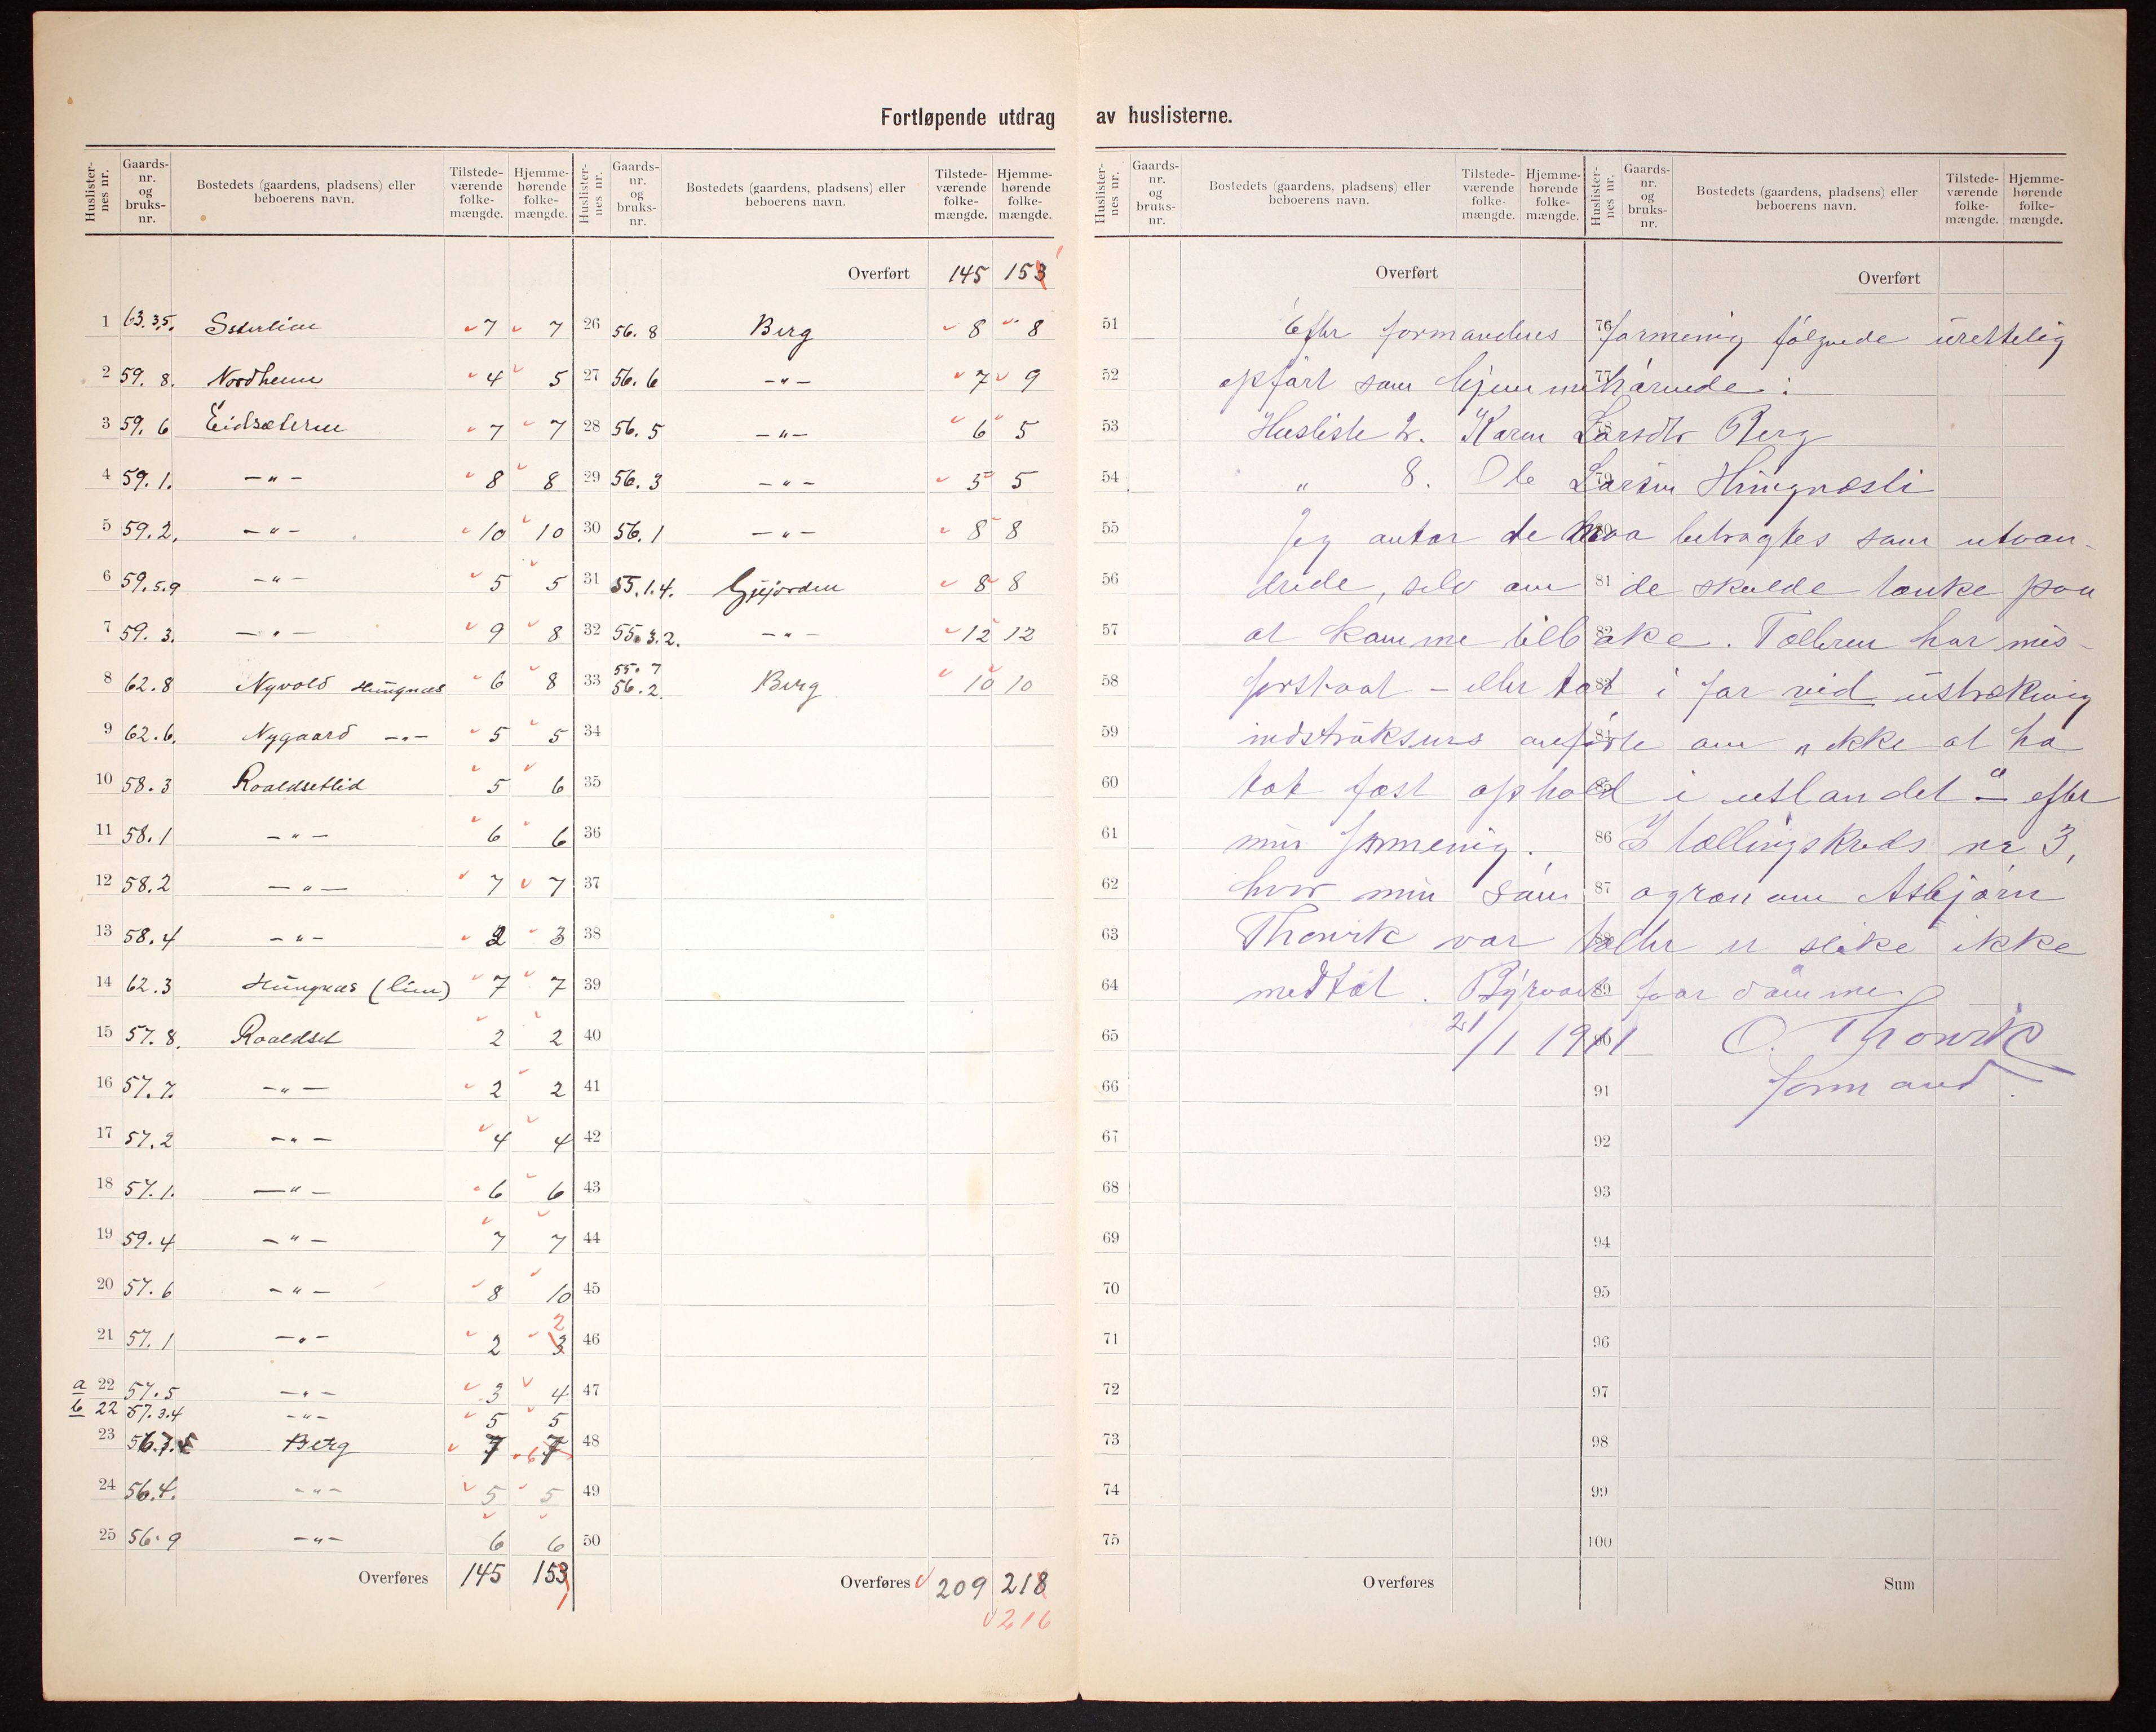 Fortløpende utdrag av huslisterne.
Huslister-nes nr. Gaards-nr. og bruks-nr. Bostedets (gaardens, pladsens) eller beboerens navn. Tilstede-værende folke-mængde. Hjemme-hørende folke-mængde.
1 63.3,5. 7 7
2 59. 8. Nordheim 4 5
3 59. 6 Eidsæteren 7 7
4 59.1. —"— 8 8
5 59.2. —"— 10 10
6 59.5.9 —"— 5 5
7 59. 3. —"— 9 8
8 62.8 Nyvold Hungnes 6 8
9 62.6. Nygaard —"— 5 5
10 58.3 Roaldsetlid 5 6
11 58.1 —"— 6 6
12 58.2 —"— 7 7
13 58.4 —"— 2 3
14 62.3 Hungnes (lien) 7 7
15 57.8. Roaldset 2 2
16 57.7. —"— 2 2
17 57.2 —"— 4 4
18 57.1. —"— 6 6
19 59.4 —"— 7 7
20 57.6 —"— 8 10
21 57.1 —"— 2 3 2
a 22 57.5 —"— 3 4
b 22 57.3.4 —"— 5 5
23 56.7. Berg 7 6 7
24 56.4. —"— 5 5
25 56.9 —"— 6 6
Overføres 145 153 1
Huslister-nes nr. Gaards-nr. og bruks-nr. Bostedets (gaardens, pladsens) eller beboerens navn. Tilstede-værende folke-mængde. Hjemme-hørende folke-mængde.
Overført 145 153 1
26 56.8 Berg 8 8
27 56.6 —"— 7 9
28 56.5 —"— 6 5
29 56.3 —"— 5 5
30 56.1 —"— 8 8
31 55.1.4. Gjejorden 8 8
32 55.3.2. —"— 12 12
33 55.7 56.2. Berg 10 10
34
35
36
37
38
39
40
41
42
43
44
45
46
47
48
49
50
Overføres 209 218
216
Huslister-nes nr. Gaards-nr. og bruks-nr. Bostedets (gaardens, pladsens) eller beboerens navn. Tilstede-værende folke-mængde. Hjemme-hørende folke-mængde. Huslister-nes nr. Gaards-nr. og bruks-nr. Bostedets (gaardens, pladsens) eller beboerens navn. Tilstede-værende folke-mængde. Hjemme-hørende folke-mængde.
Overført Overført
51 Efter formandens 76 formening følgende urettelig
52 opført som hjemmehørende: 77
53 Husliste 2. Karen Larsdtr Berg 78
54 " 8. Ole Larsen Hungnesli 79
55 Jeg antar de maa betragtes som utvan- 80
56 drede, selv om 81 de skulde tænke paa
57 at komme tilbake. Tælleren har mis- 82
58 forstaat – eller tat i for vid utstrækning 83
59 instruksens anførte om „ikke at ha 84
60 tat fast ophold i utlandet" – efter 85
61 min formening. 86 I tællingskreds nr 3,
62 hvor min søn 87 agronom Asbjørn
63 Thonvik var tæller er slike ikke 88
64 medtat. Byraaet faar dømme. 89
65 21/1 1911 90 O. Thonvik
66 91 formand.
67 92
68 93
69 94
70 95
71 96
72 97
73 98
74 99
75 100
Overføres Sum